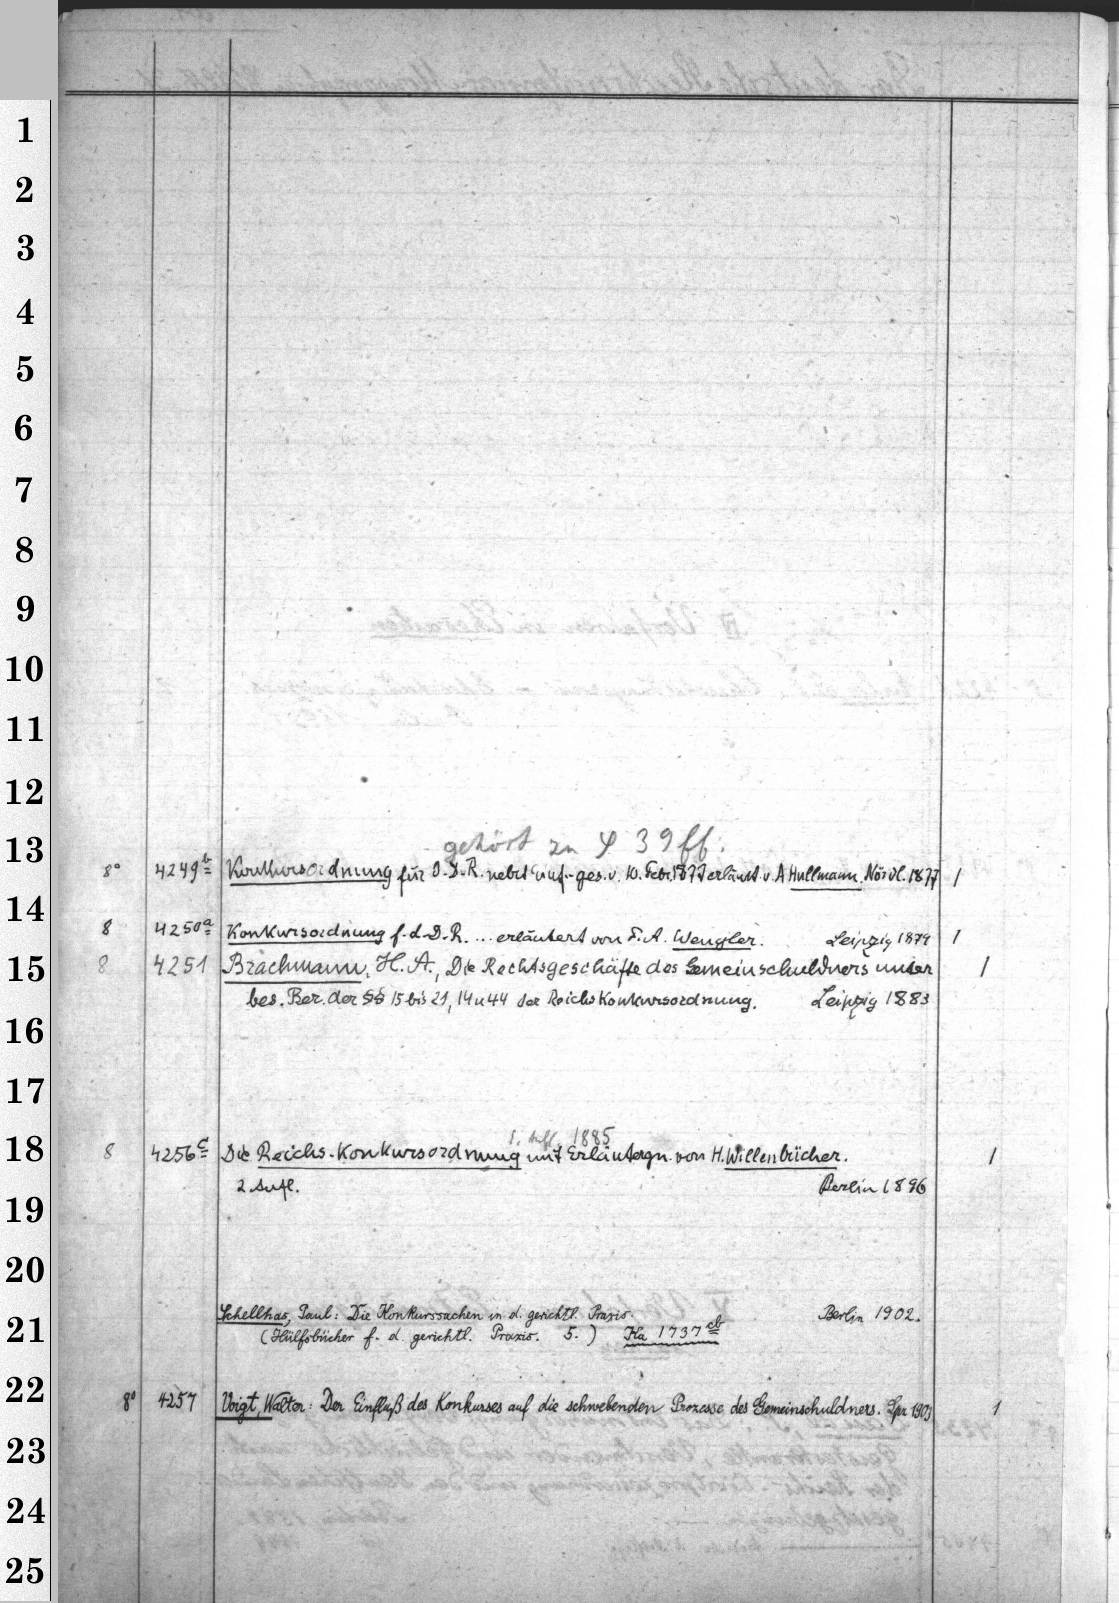 1
2
3
4
5
6
7
8
9
10
11
12
13
14
15
16
17
18
19
20
21
22
23
24
25
gehört zu S 39ff.
8° 4249b Konkursordnung für d. D. R. nebst Einf.-ges. v. 10. Febr. 1877 erläut. v. A Hullmann. Nördl. 1877 1
8 4250a Konkursordnung f. d. D. R. ... erläutert von F. A. Wengler. Leipzig 1879 1
8 4251 Brachmann, H. A., Die Rechtsgeschäfte des Gemeinschuldners unter 1
bes. Ber. der §§ 15 bis 21, 14 u 44 der Reichskonkursordnung. Leipzig 1883
1. Aufl. 1885
8 4256c Die Reichs-Konkursordnung mit Erläutergn. von H. Willenbücher. 1
2 Aufl. Berlin 1896
Schellhas, Paul: Die Konkurssachen in d. gerichtl. Praxis. Berlin 1902.
(Hülfsbücher f. d. gerichtl. Praxis. 5.) Ka 1737cb
8° 4257 Voigt, Walter: Der Einfluß des Konkurses auf die schwebenden Prozesse des Gemeinschuldners. Lpz 1903 1